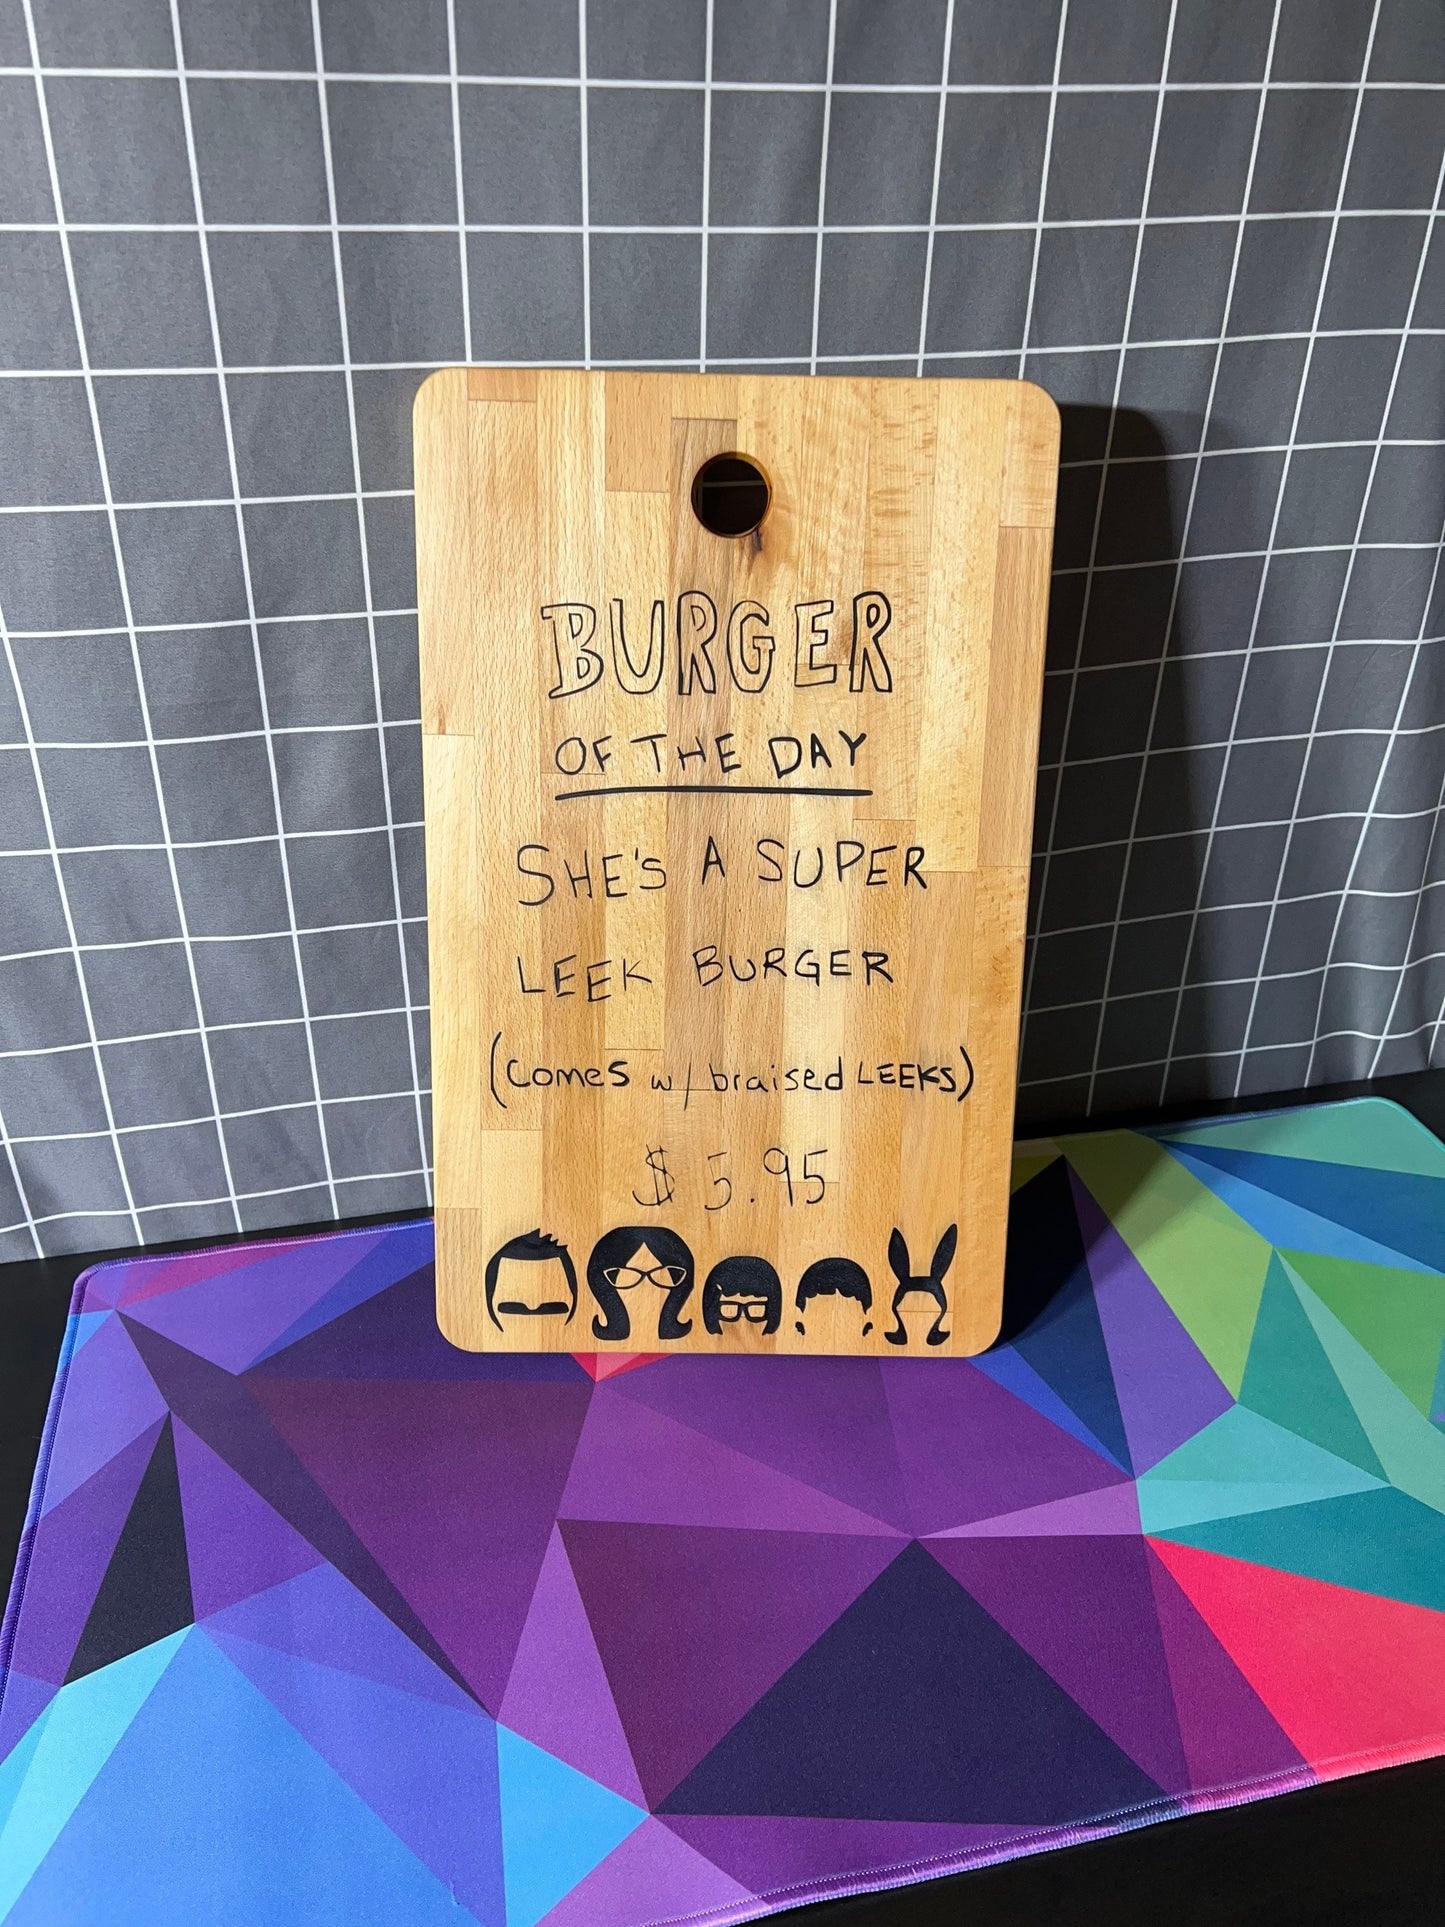 BURGER
OF THE DAY
SHE'S A SUPER
LEEK BURGER
(comes w/ braised LEEKS)
$5.95